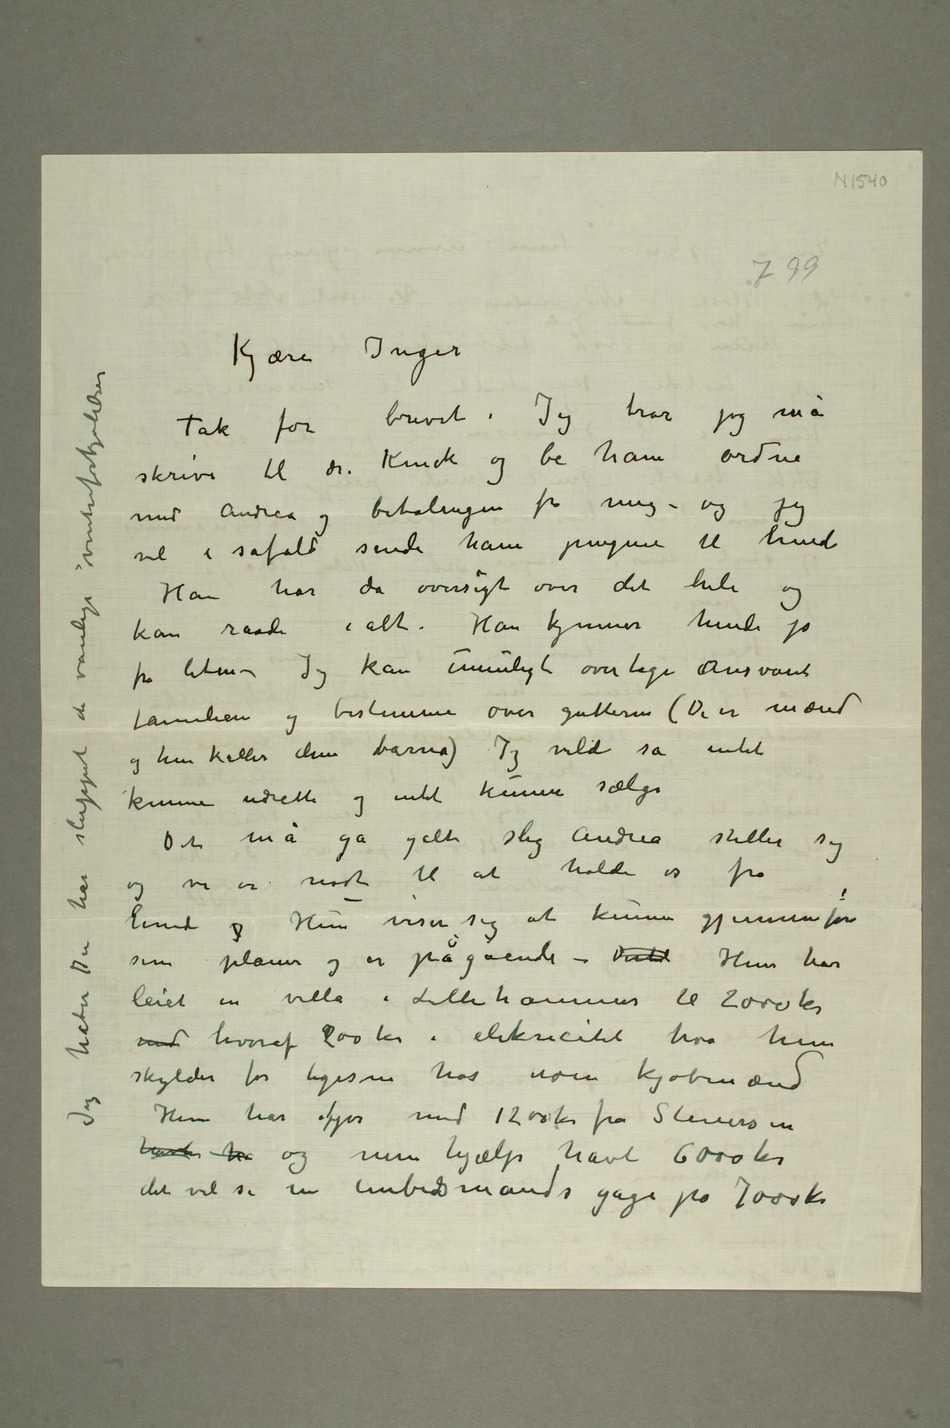 N 1540
799
Kjære Inger
Tak for brevet. Jeg tror jeg må
skrive til dr. Kinck og be ham ordne
med Andrea og betalingen fra meg – og jeg
vil i såfald sende ham pengene til hende
Han har da oversigt over det hele og
kan raade i alt. Han kjenner hende jo
fra liten – Jeg kan umuligt overtage ansvaret
familien og bestemme over gutterne (De er mænd
og hun kaller dem barna) Jeg vilde så intet
kunne udrette og intet kunne sælge
Det må gå galt slig Andrea steller sig
og vi er nødt til at holde os fra
hende og Hun viser sig at kunne gjennemføre
sine planer og er pågående – Hun har
leiet en villa i Lillehammer til 2000 kr
hvoraf 200 kr i elekricitet hva hun
skylder for ligesom hos noen kjøbmænd
Hun har ifjor med 1200 kr fra Stenersen
og min hjælp havt 6000 kr
det vil si en embedsmands gage på 7000 kr
Jeg håber Du har sluppet de vanlige vinterforkjølelser